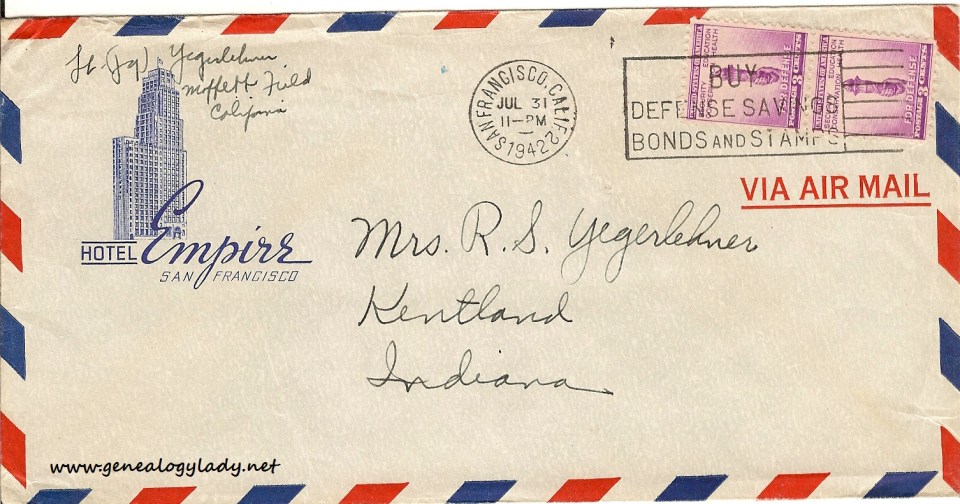 Lt. (jg) Yegerlehner
Moffett Field
California
HOTEL Empire
SAN FRANCISCO
SAN FRANCISCO, CALIF.
JUL 31
11-PM
1942
BUY
DEFENSE SAVINGS
BONDS AND STAMPS
UNITED STATES OF AMERICA
SECURITY EDUCATION
CONSERVATION HEALTH
FOR DEFENSE
POSTAGE 3 CENTS
UNITED STATES OF AMERICA
SECURITY EDUCATION
CONSERVATION HEALTH
FOR DEFENSE
POSTAGE 3 CENTS
VIA AIR MAIL
Mrs. R. S. Yegerlehner
Kentland
Indiana
www.genealogylady.net